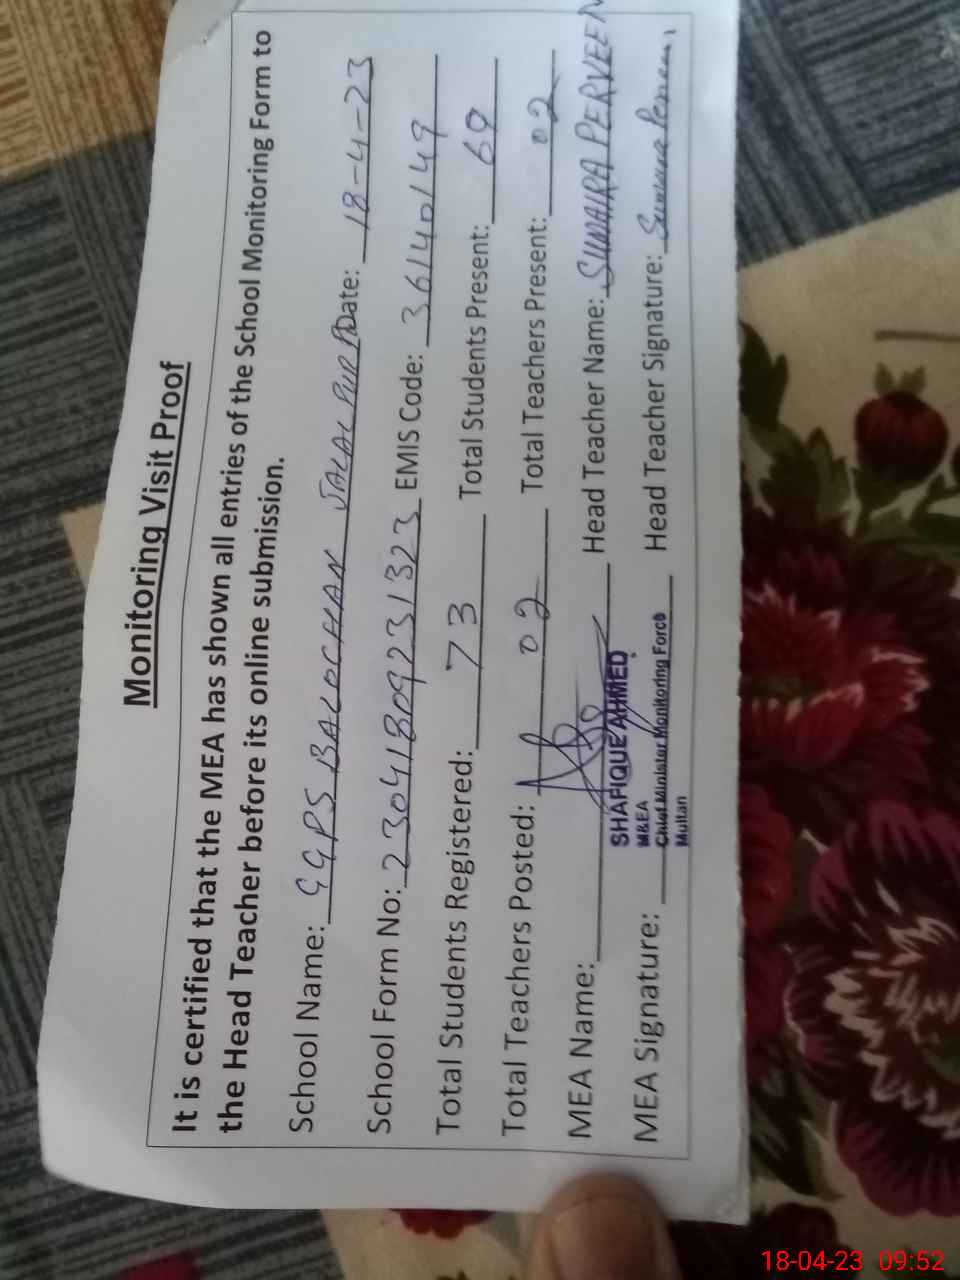 Monitoring Visit Proof
It is certified that the MEA has shown all entries of the School Monitoring Form to
the Head Teacher before its online submission.
School Name: GGPS BALOCHAN JALAL PUR P Date: 18-4-23
School Form No: 230418092231323 EMIS Code: 36140149
Total Students Registered: 73 Total Students Present: 69
Total Teachers Posted: 02 Total Teachers Present: 02
MEA Name: Head Teacher Name: SUMAIRA PERVEEN
SHAFIQUE AHMED
M&EA
Chief Minister Monitoring Force
Multan
MEA Signature: Head Teacher Signature: Sumaira Perveen
18-04-23 09:52